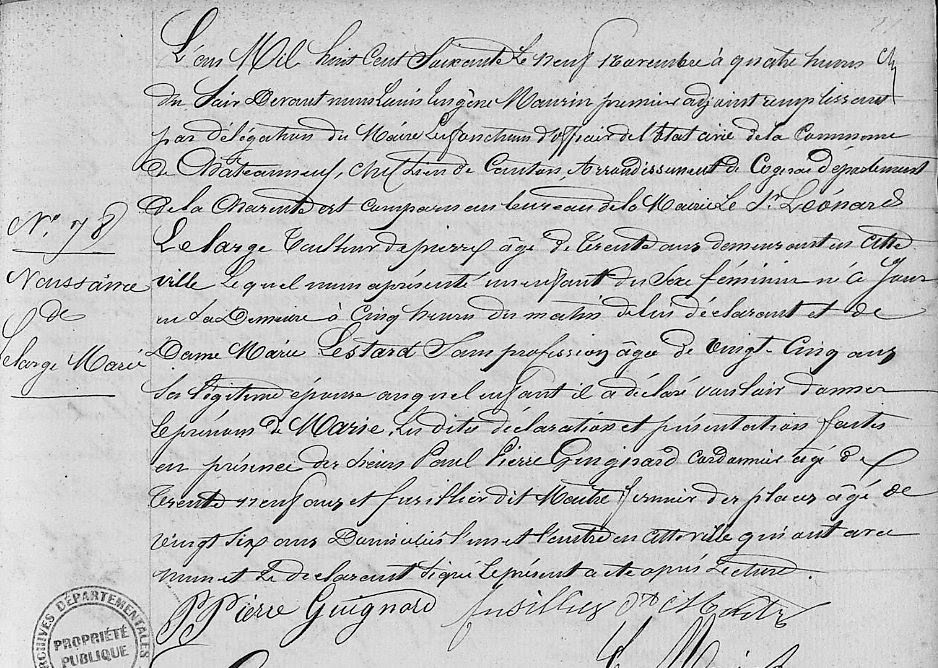 L'an Mil huit Cent Soixante Le neuf Novembre à quatre heures
du Soir Devant nous Louis Eugène Maurin premier adjoint remplissant
par délégation du Maire Les fonctions d'officier de l'Etat civil de la Commune
de Châteauneuf, chef Lieu de Canton, Arrondissement de Cognac département
de la Charente est comparu au bureau de la Mairie Le Sr Léonard
Lelarge Tailleur de pierre, âgé de trente ans demeurant en cette
ville Lequel nous a présenté un enfant du Sexe féminin né ce Jour
en sa Demeure à Cinq heures du matin de lui déclarant et de
Dame Marie Lestard Sans profession, âgée de vingt-Cinq ans
Son légitime épouse auquel enfant il a déclaré vouloir donner
Le prénom de Marie. Les dites déclaration et présentation faites
en présence des Sieurs Paul Pierre Guignard cordonnier âgé de
trente neuf ans et fusillier dit Maître fermier des places âgé de
vingt six ans Domiciliés l'un et l'autre en cette ville qui ont avec
nous et Le déclarant Signé Le présent acte après Lecture.
P. Pierre Guignard fusillier dt Maître
No. 78
Naissance
de
Large Marie
ARCHIVES DÉPARTEMENTALES
PROPRIÉTÉ
PUBLIQUE